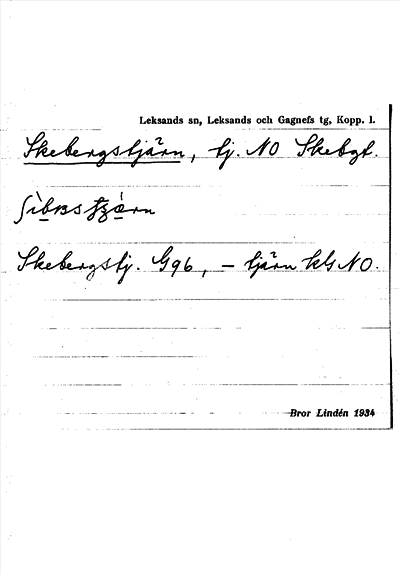 Leksands sn, Leksands och Gagnefs tg, Kopp. l.
Skebergstjärn, tj. NO Skebgt.
Skebergstj. G96, – tjärn kls NO.
Bror Lindén 1934